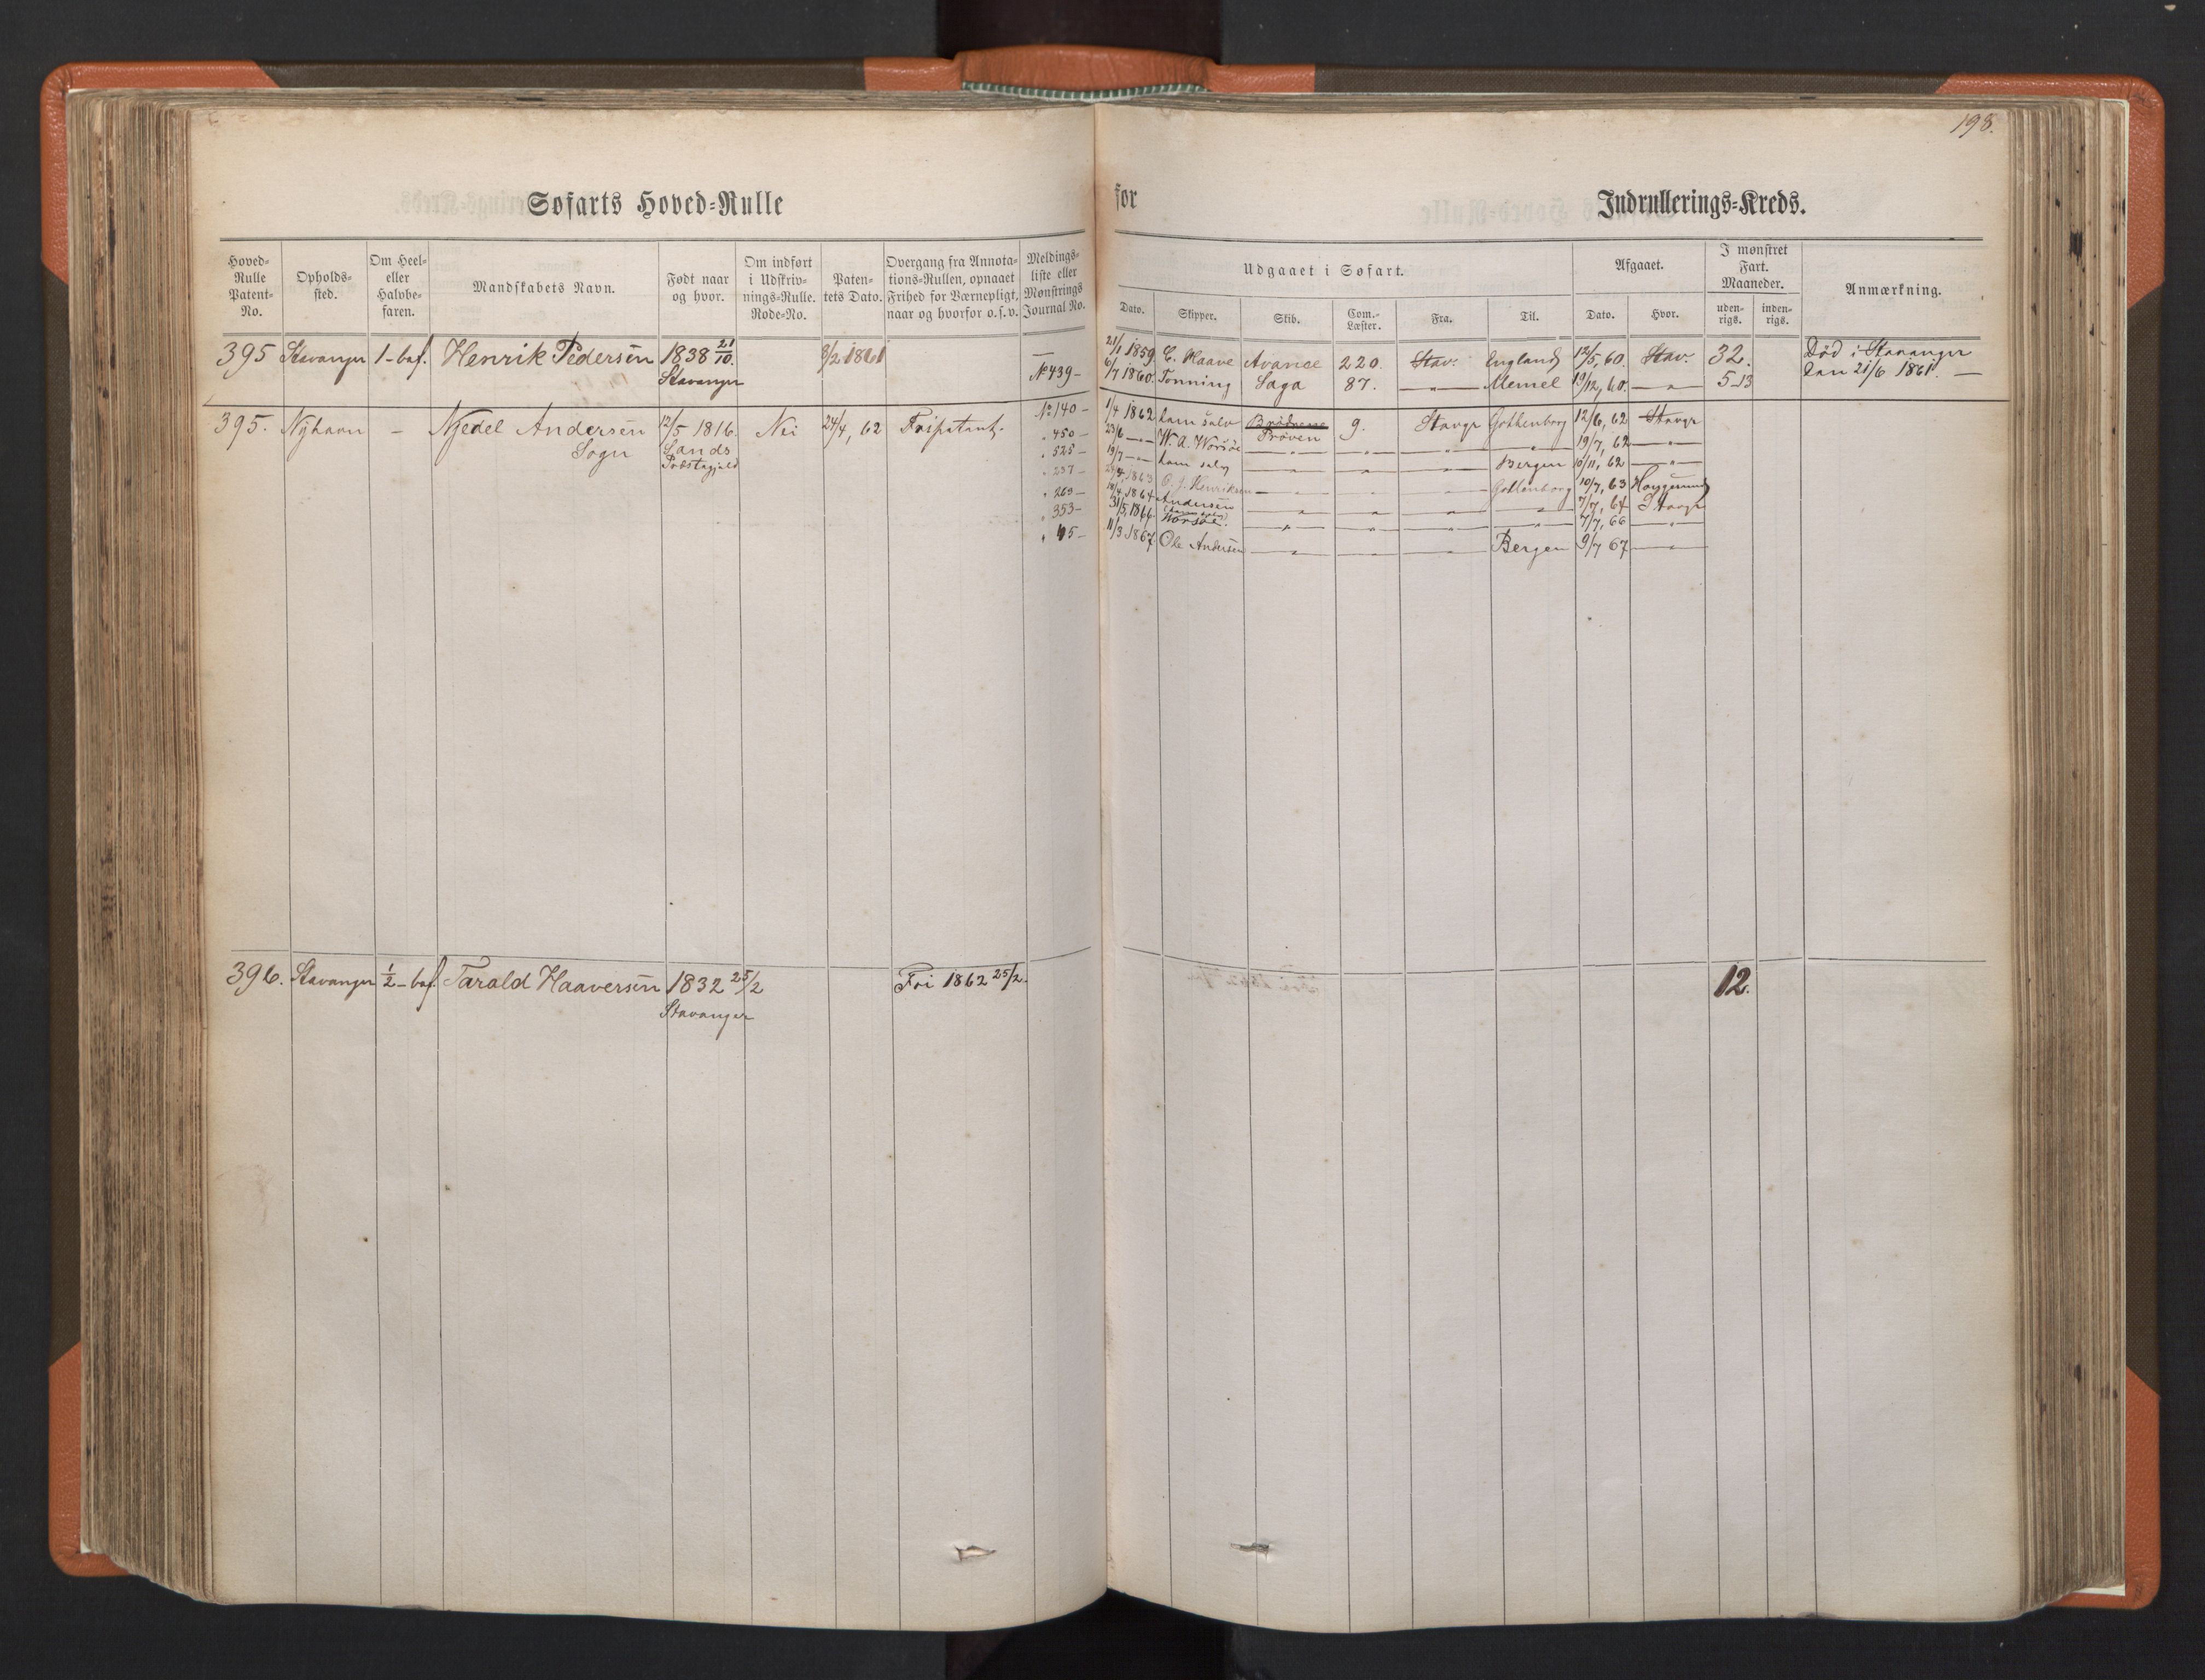 198.
Søfarts Hoved-Rulle for Indrullerings-Kreds.
Hoved-Rulle Patent-No.
Opholds-sted.
Om Heel- eller Halvbe-faren.
Mandskabets Navn.
Født naar og hvor.
Om indført i Udskriv-nings-Rulle. Rode-No.
Paten-tets Dato.
Overgang fra Annota-tions-Rullen, opnaaet Frihed for Værnepligt, naar og hvorfor o.s.v.
Meldings-liste eller Mønstrings Journal No.
Udgaaet i Søfart.
Dato. Skipper. Skib. Com.-Læster. Fra. Til.
Afgaaet.
Dato. Hvor.
I mønstret Fart. Maaneder.
uden-rigs. inden-rigs.
Anmærkning.
395 Stavanger 1-baf. Henrik Pedersen 1838 21/10. 8/2 1861 — 21/1 1859 C. Haave Avance 220. Stav. England 12/5, 60. Stav. 32. Død i Stavanger
Stavanger No 439 - 6/7 1860. Tonning Saga 87. —„— Memel 19/12, 60 —„— 5-13 den 21/6 1861. —
395. Nyhavn - Njedel Andersen 12/5 1816. Nei 24/4, 62 Fripatent. No 140 - 1/4 1862 ham selv Brødrene 9. Stavgr Gothenborg 12/6, 62 Stavgr
Sogn Sands „ 450 - 23/6 —„— W. A. Worsöe Prøven —„— —„— —„— —„— 19/7, 62 —„—
Præstegjeld „ 525 - 19/7 —„— ham selv —„— —„— —„— Bergen 10/11, 62 —„—
„ 237 - 1863 O. J. Henriksen —„— —„— —„— Gothenborg 10/7, 63 Haugesund
„ 269 - 1864 Andersen —„— —„— —„— —„— 7/7, 64 Stavgr
„ 353 - 31/5, 1866 Worsöe. —„— —„— —„— —„— 4/7, 66 —„—
„ 65 - 11/3 1867 Ole Andersen —„— —„— —„— Bergen 9/7 67 —„—
396. Stavanger 1/2-baf. Tarald Haaversen 1832 25/2 Fri 1862 25/2. 12.
Stavanger